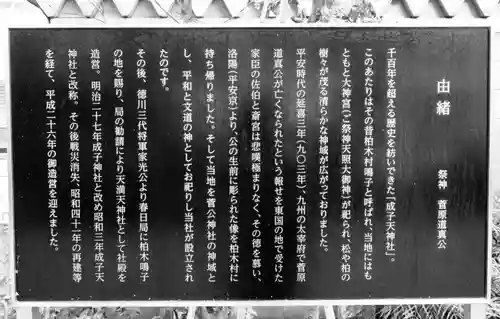 由緒
祭神　菅原道真公
千百年を超える歴史を紡いできた「成子天神社」。
このあたりはその昔柏木村鳴子と呼ばれ、当地にはも
ともと大神宮（ご祭神天照大御神）が祀られ、松や柏の
樹々が茂る清らかな神域が広がっておりました。
平安時代の延喜三年（九〇三年）、九州の太宰府で菅原
道真公が亡くなられたという報せを東国の地で受けた
家臣の佐伯と斎宮は悲嘆極まりなく、その徳を慕い、
洛陽（平安京）より、公の生前に彫られた像を柏木村に
持ち帰りました。そして当地を菅公神社の神域と
し、平和と文道の神として祀りし当社が設立され
たのです。
その後、徳川三代将軍家光公より春日局に柏木鳴子
の地を賜り、局の勧請により天満天神社として社殿を
造営。明治二十七年成子神社と改め昭和三年成子天
神社と改称。その後戦災消失、昭和四十一年の再建等
を経て、平成二十六年の御造営を迎えました。